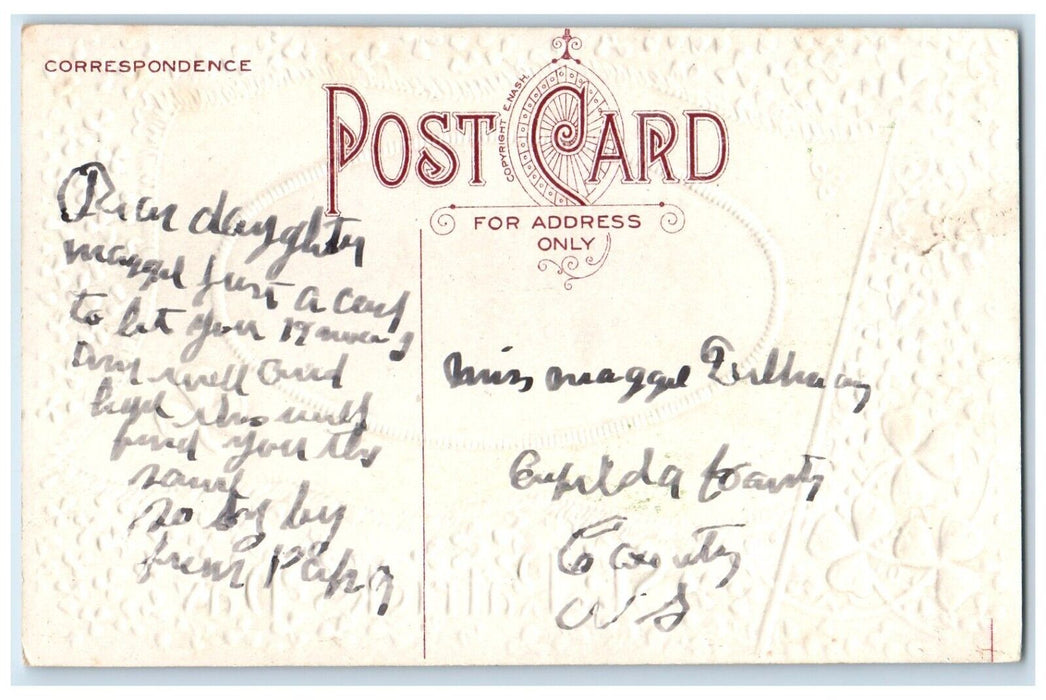 CORRESPONDENCE
POST CARD
COPYRIGHT E.NASH.
FOR ADDRESS
ONLY
Dear daughter
maggie Just a card
to let you
am well and
hope this will
find you the
same
so by by
from Papa
miss maggie
County